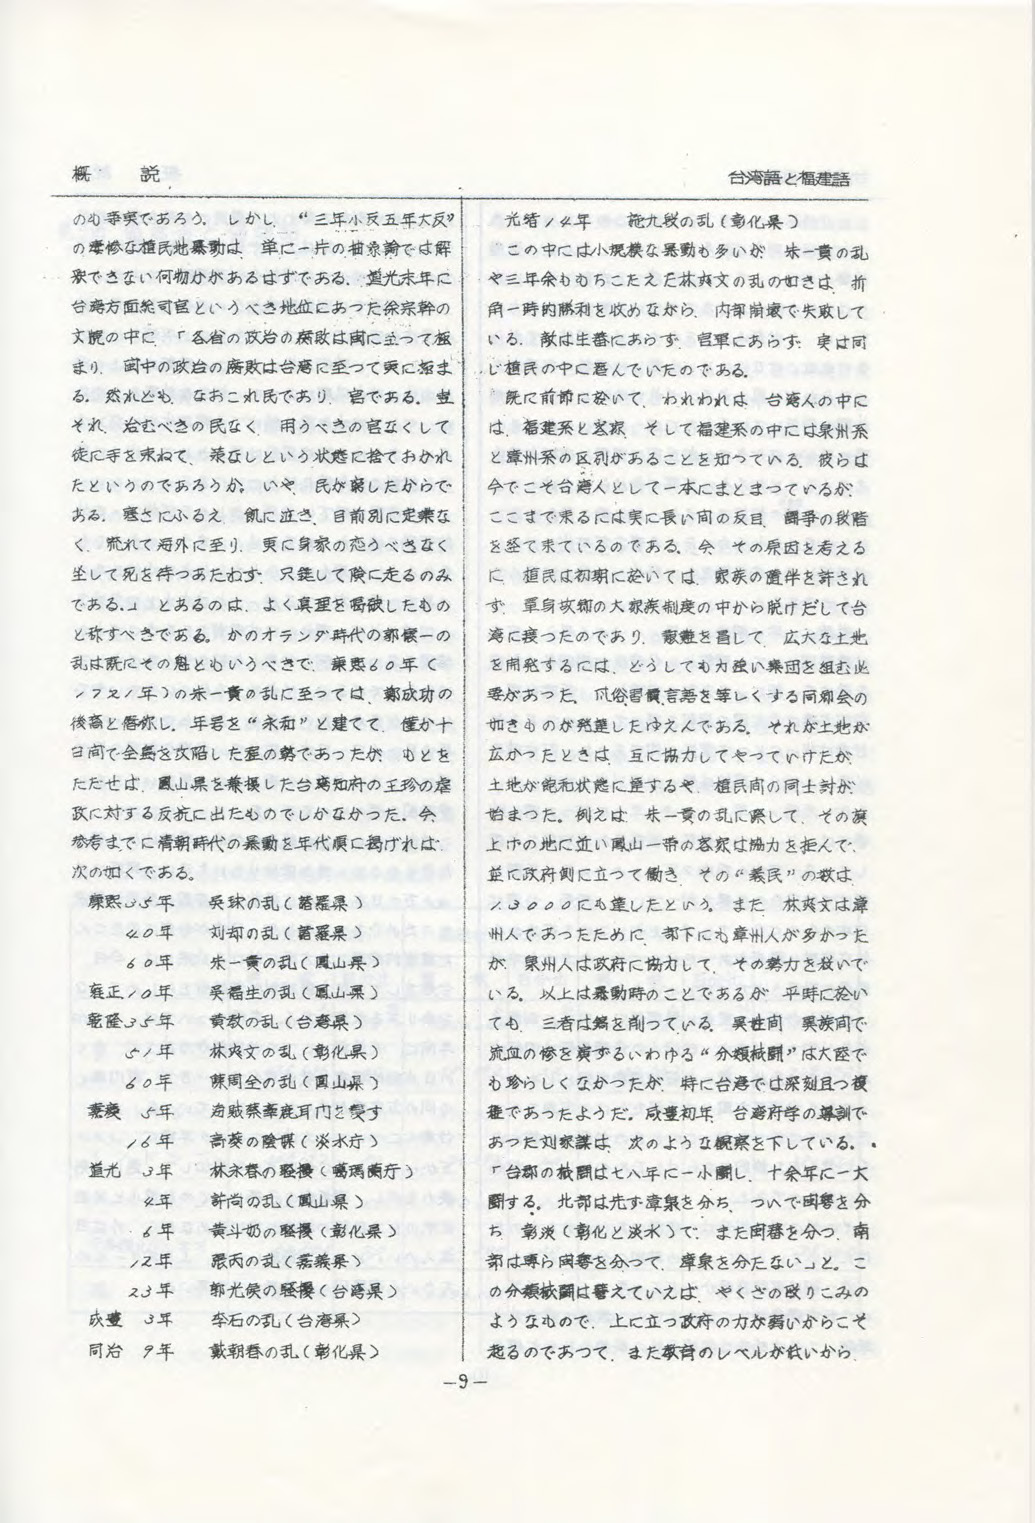 概　説
台湾語と福建語
のも事実であろう。しかし、“三年小反五年大反”
の凄惨な植民地暴動は、単に一片の抽象論では解
釈できない何物かがあるはずである。道光末年に
台湾方面総司官というべき地位にあった徐宗幹の
文牘の中に、「各省の政治の腐敗は閩に至って極
まり、閩中の政治の腐敗は台湾に至つて更に極ま
る。然れども、なおこれ民であり、官である。豈
それ、治むべきの民なく、用うべきの官なくして
徒に手を束ねて、策なしという状態に捨ておかれ
たというのであろうか。いや、民が窮したからで
ある。寒さにふるえ、飢に泣き、目前別に定業な
く、流れて海外に至り、更に身家の恋うべきなく
坐して死を待つあたわず、只鋌して険に走るのみ
である。」とあるのは、よく真理を喝破したもの
と称すべきである。かのオランダ時代の郭懐一の
乱は既にその魁ともいうべきで、康熙60年（
1721年）の朱一貴の乱に至っては、鄭成功の
後裔と僭称し、年号を“永和”と建てて、僅か十
日間で全島を攻陥した程の勢であったが、もとを
ただせば、鳳山県を兼摂した台湾知府の王珍の虐
政に対する反抗に出たものでしかなかった。今、
参考までに清朝時代の暴動を年代順に掲げれば、
次の如くである。
康熙35年　呉球の乱（諸羅県）
40年　刘却の乱（諸羅県）
60年　朱一貴の乱（鳳山県）
雍正10年　呉福生の乱（鳳山県）
乾隆35年　黄教の乱（台湾県）
51年　林爽文の乱（彰化県）
60年　陳周全の乱（鳳山県）
嘉慶　5年　海賊蔡牽鹿耳門を襲す
16年　高夔の陰謀（淡水庁）
道光　3年　林永春の騒擾（葛瑪蘭庁）
4年　許尚の乱（鳳山県）
6年　黄斗奶の騒擾（彰化県）
12年　張丙の乱（嘉義県）
23年　郭光侯の騒擾（台湾県）
咸豊　3年　李石の乱（台湾県）
同治　9年　戴朝春の乱（彰化県）
光緒14年　施九段の乱（彰化県）
この中には小規模な暴動も多いが、朱一貴の乱
や三年余ももちこたえた林爽文の乱の如きは、折
角一時的勝利を収めながら、内部崩壊で失敗して
いる。敵は生番にあらず、官軍にあらず、実は同
じ植民の中に潜んでいたのである。
既に前節に於いて、われわれは、台湾人の中に
は、福建系と客家、そして福建系の中には泉州系
と漳州系の区別があることを知つている。彼らは
今でこそ台湾人として一本にまとまつているが、
ここまで来るには実に長い間の反目、闘争の段階
を経て来ているのである。今、その原因を考える
に、植民は初期に於いては、家族の帯伴を許され
ず、単身故郷の大家族制度の中から脱けだして台
湾に渡つたのであり、艱難を冒して、広大な土地
を開発するには、どうしても力強い集団を組む必
要があった。風俗習慣言語を等しくする同郷会の
如きものが発達したゆえんである。それが土地が
広かつたときは、互に協力してやっていけたが、
土地が飽和状態に達するや、植民間の同士討が
始まつた。例えば、朱一貴の乱に際して、その旗
上げの地に近い鳳山一帯の客家は協力を拒んで、
並に政府側に立つて働き、その“義民”の数は
13000にも達したという。また、林爽文は漳
州人であったために、部下にも漳州人が多かつた
が、泉州人は政府に協力して、その勢力を殺いで
いる。以上は暴動時のことであるが、平時に於い
ても、三者は鎬を削つている。異姓間、異族間で
流血の惨を演ずるいわゆる“分類械闘”は大陸で
も珍らしくなかつたが、特に台湾では深刻且つ複
雑であったようだ。咸豊初年、台湾府学の導訓で
あつた刘家謀は、次のような観察を下している。
「台郡の械闘は七八年に一小闘し、十余年に一大
闘する。北部は先ず漳泉を分ち、ついで閩粤を分
ち、彰淡（彰化と淡水）で、また閩番を分つ、南
部は専ら閩粤を分つて、漳泉を分たない」と。こ
の分類械闘は譬えていえば、やくざの殴りこみの
ようなもので、上に立つ政府の力が弱いからこそ
起るのであつて、また教育のレベルが低いから、
—9—